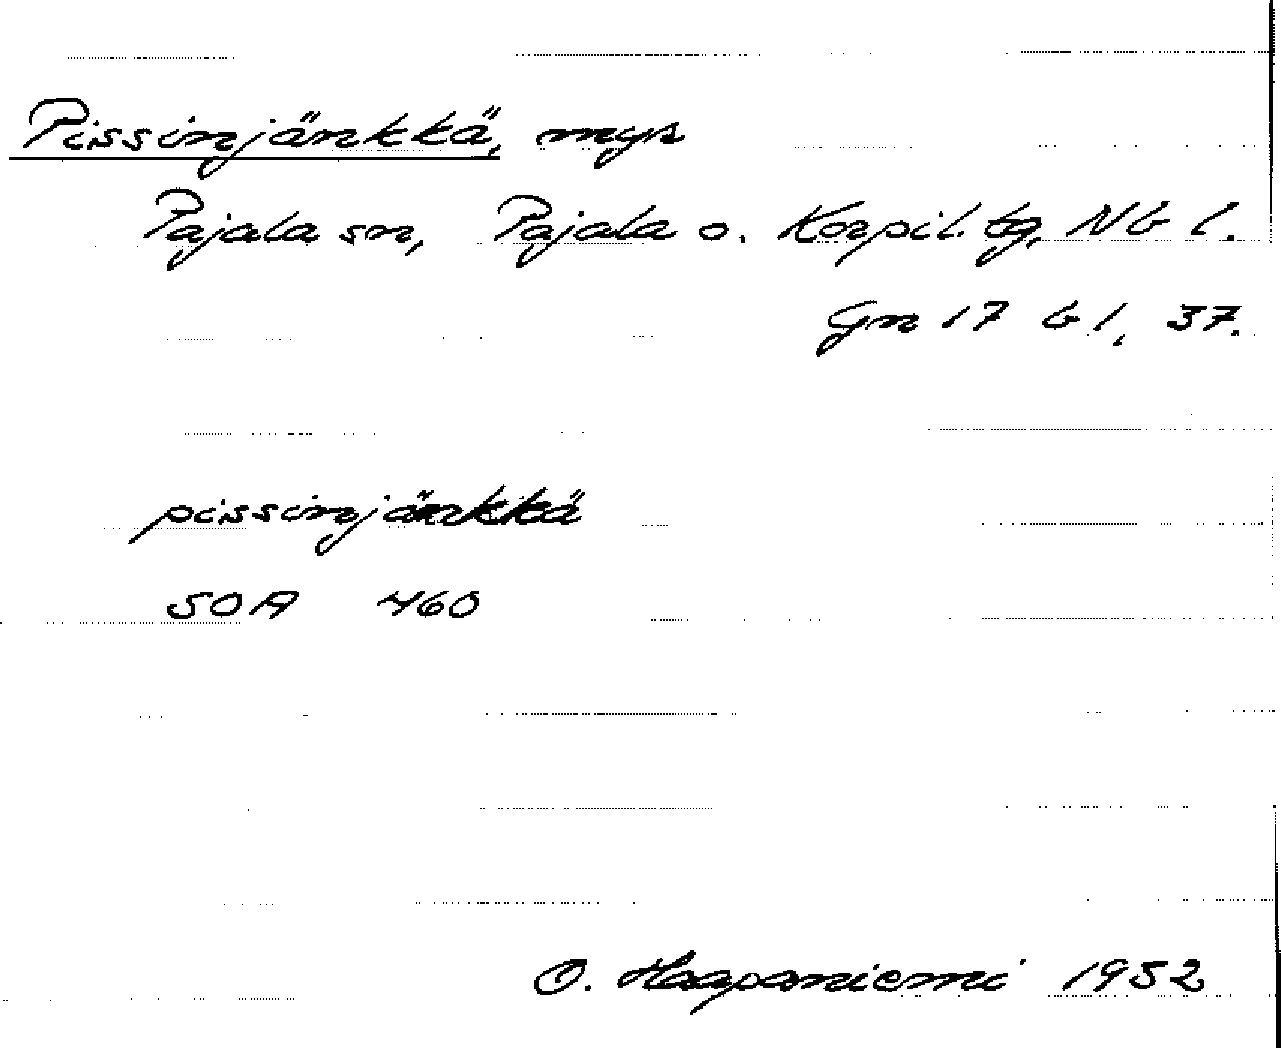 Pissinjänkkä, myr
Pajala sn, Pajala o. Korpil. tg, Nb l.
Gn 17 b 1, 37.
pissinjänkkä
SOA 460
O. Haapaniemi 1952